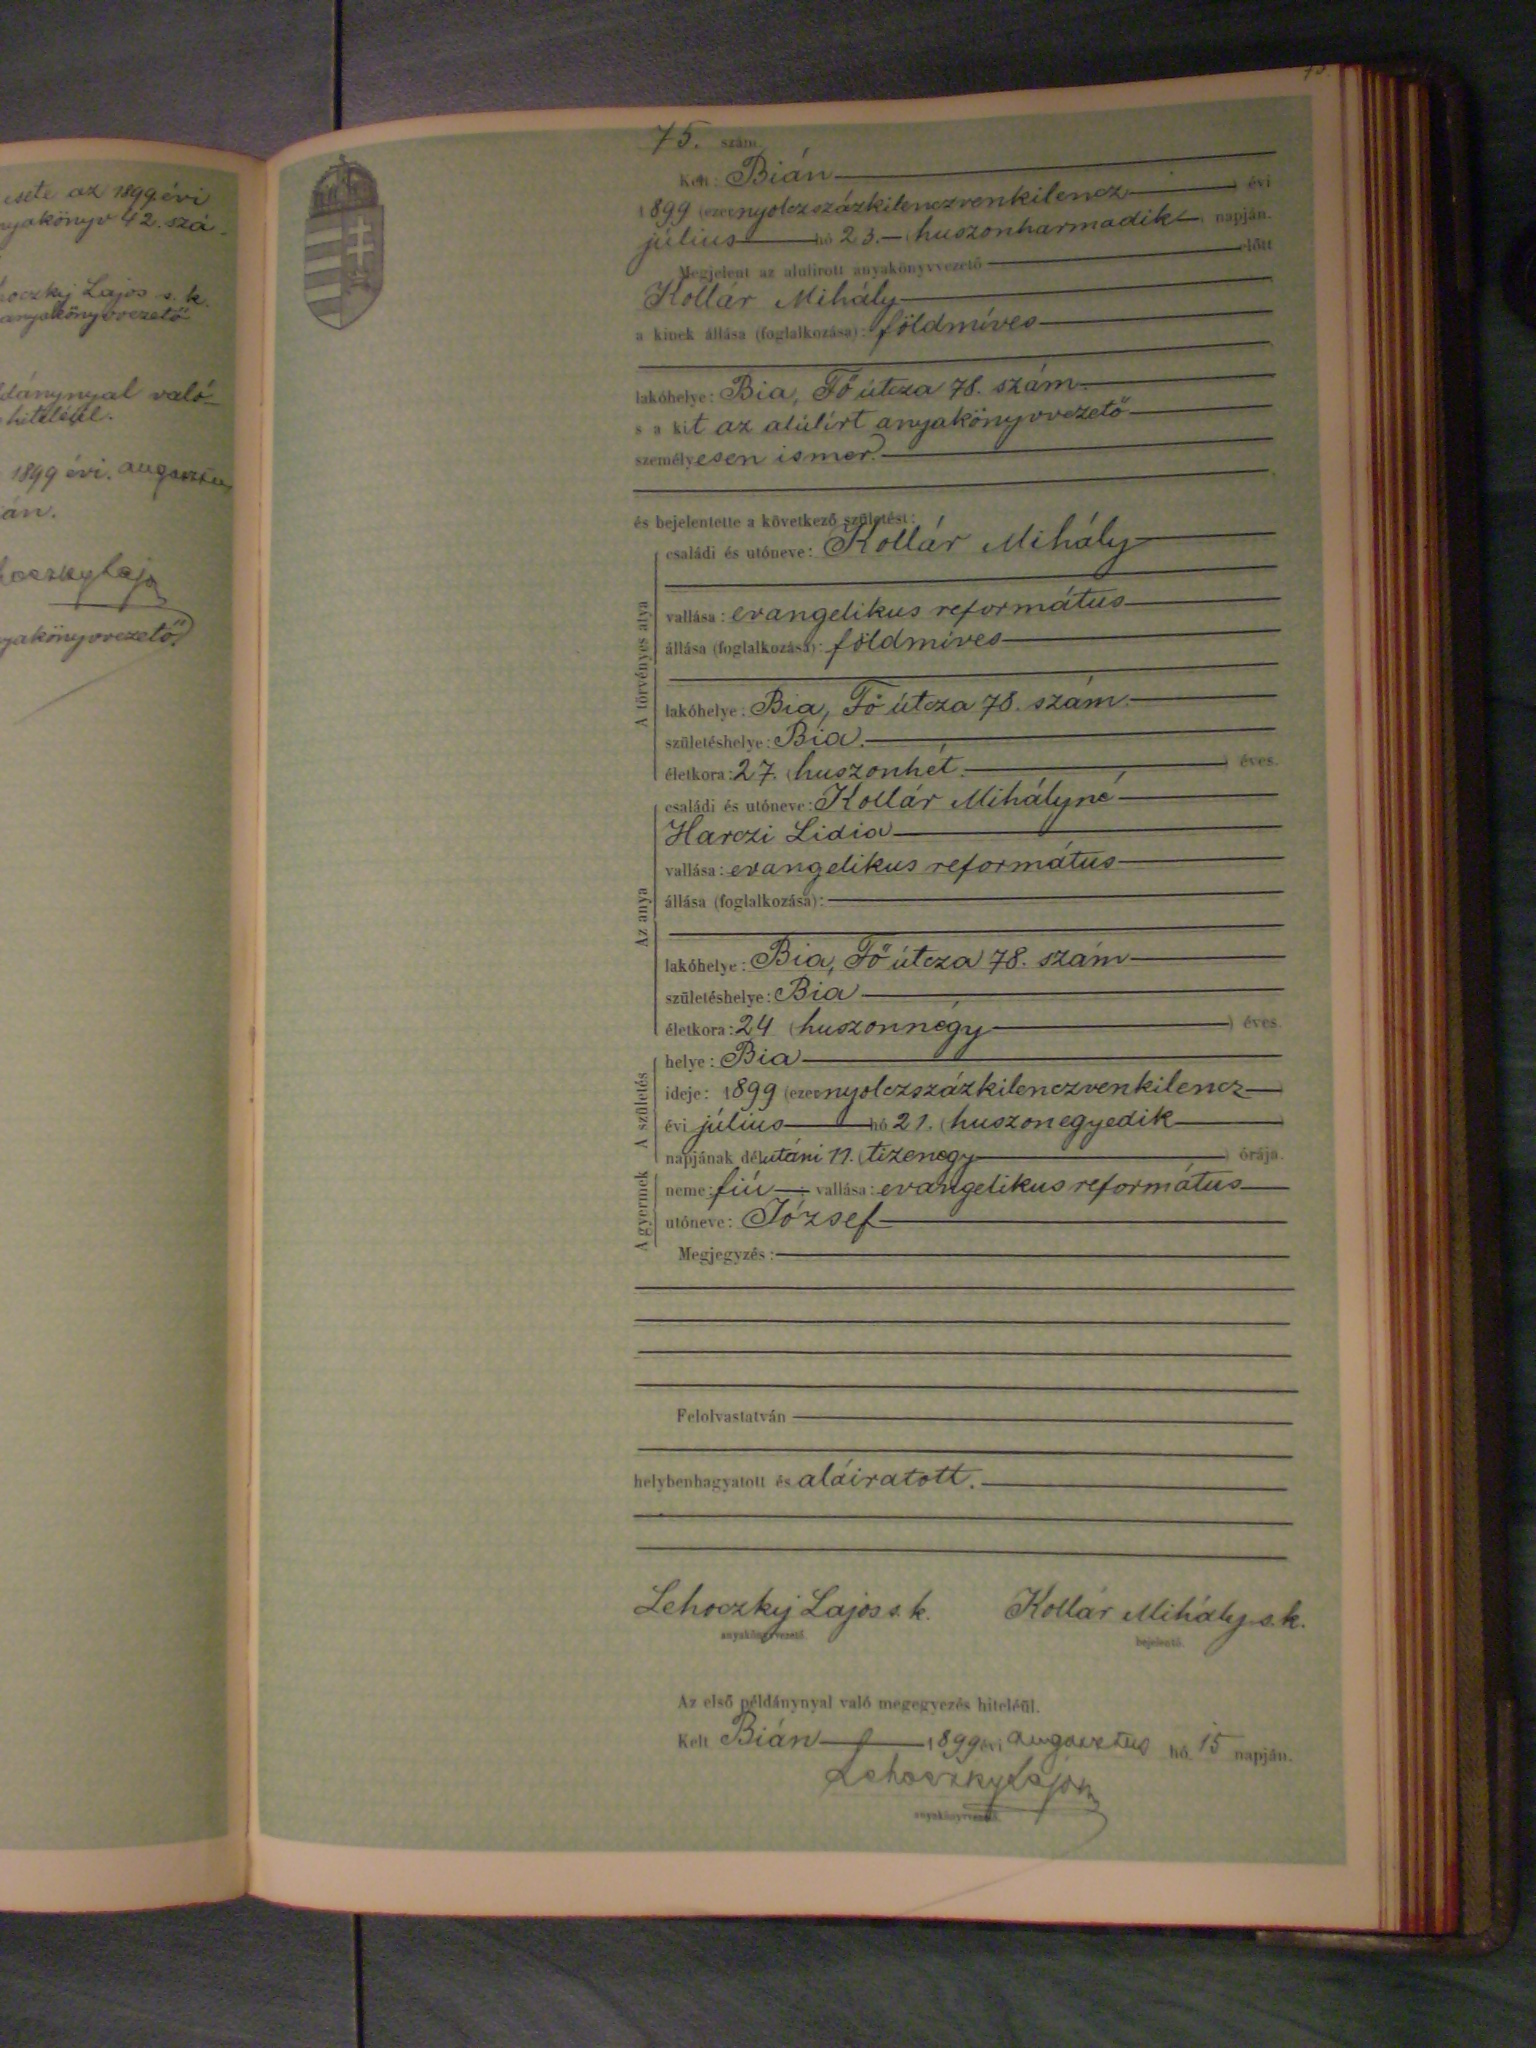 esete az 1899 évi
nyakönyv 42. szá-
hoczky Lajos s. k.
anyakönyvvezető
ldánynyal való
hiteléül.
1899 évi augusztus
án.
hoczky Lajos
nyakönyvvezető
75.
75. szám.
Kelt: Bián
1899 (ezernyolczszázkilenczvenkilencz ) évi
július hó 23. (huszonharmadik) napján.
Megjelent az alulirott anyakönyvvezető előtt
Kollár Mihály
a kinek állása (foglalkozása): földmíves
lakóhelye: Bia, Fő útcza 78. szám.
s a kit az alúlírt anyakönyvvezető
személyesen ismer.
és bejelentette a következő születést:
A törvényes atya
családi és utóneve: Kollár Mihály
vallása: evangelikus református
állása (foglalkozása): földmíves
lakóhelye: Bia, Fő útcza 78. szám.
születéshelye: Bia.
életkora: 27. (huszonhét. ) éves.
Az anya
családi és utóneve: Kollár Mihályné
Harczi Lidia
vallása: evangelikus református
állása (foglalkozása):
lakóhelye: Bia, Fő útcza 78. szám
születéshelye: Bia
életkora: 24 (huszonnégy ) éves.
A születés
helye: Bia
ideje: 1899 (ezernyolczszázkilenczvenkilencz )
évi július hó 21. (huszonegyedik )
napjának délutáni 11. (tizenegy ) órája.
A gyermek
neme: fiú ; vallása: evangelikus református
utóneve: József
Megjegyzés:
Felolvastatván
helybenhagyatott és aláiratott.
Lehoczky Lajos s. k. Kollár Mihály s. k.
anyakönyvvezető. bejelentő.
Az első példánynyal való megegyezés hiteléül.
Kelt Bián 1899 évi augusztus hó 15 napján.
Lehoczky Lajos
anyakönyvvezető.